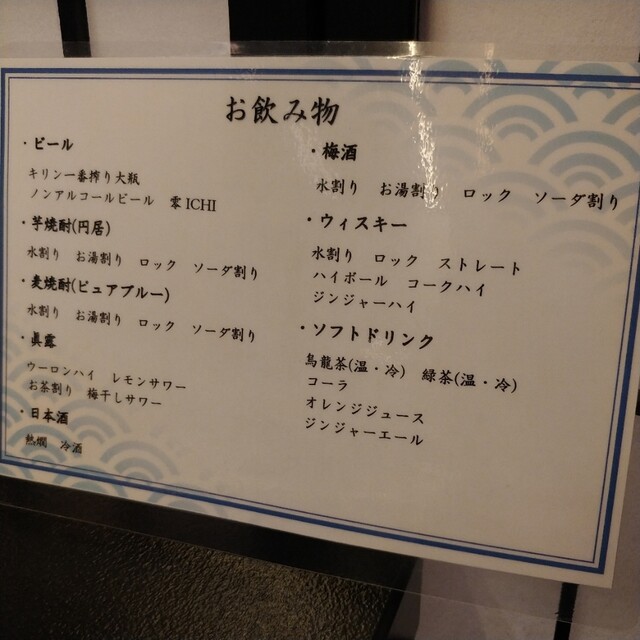 お飲み物
・ビール
キリン一番搾り大瓶
ノンアルコールビール　零ICHI
・芋焼酎(円居)
水割り　お湯割り　ロック　ソーダ割り
・麦焼酎(ピュアブルー)
水割り　お湯割り　ロック　ソーダ割り
・眞露
ウーロンハイ　レモンサワー
お茶割り　梅干しサワー
・日本酒
熱燗　冷酒
・梅酒
水割り　お湯割り　ロック　ソーダ割り
・ウィスキー
水割り　ロック　ストレート
ハイボール　コークハイ
ジンジャーハイ
・ソフトドリンク
烏龍茶(温・冷)　緑茶(温・冷)
コーラ
オレンジジュース
ジンジャーエール